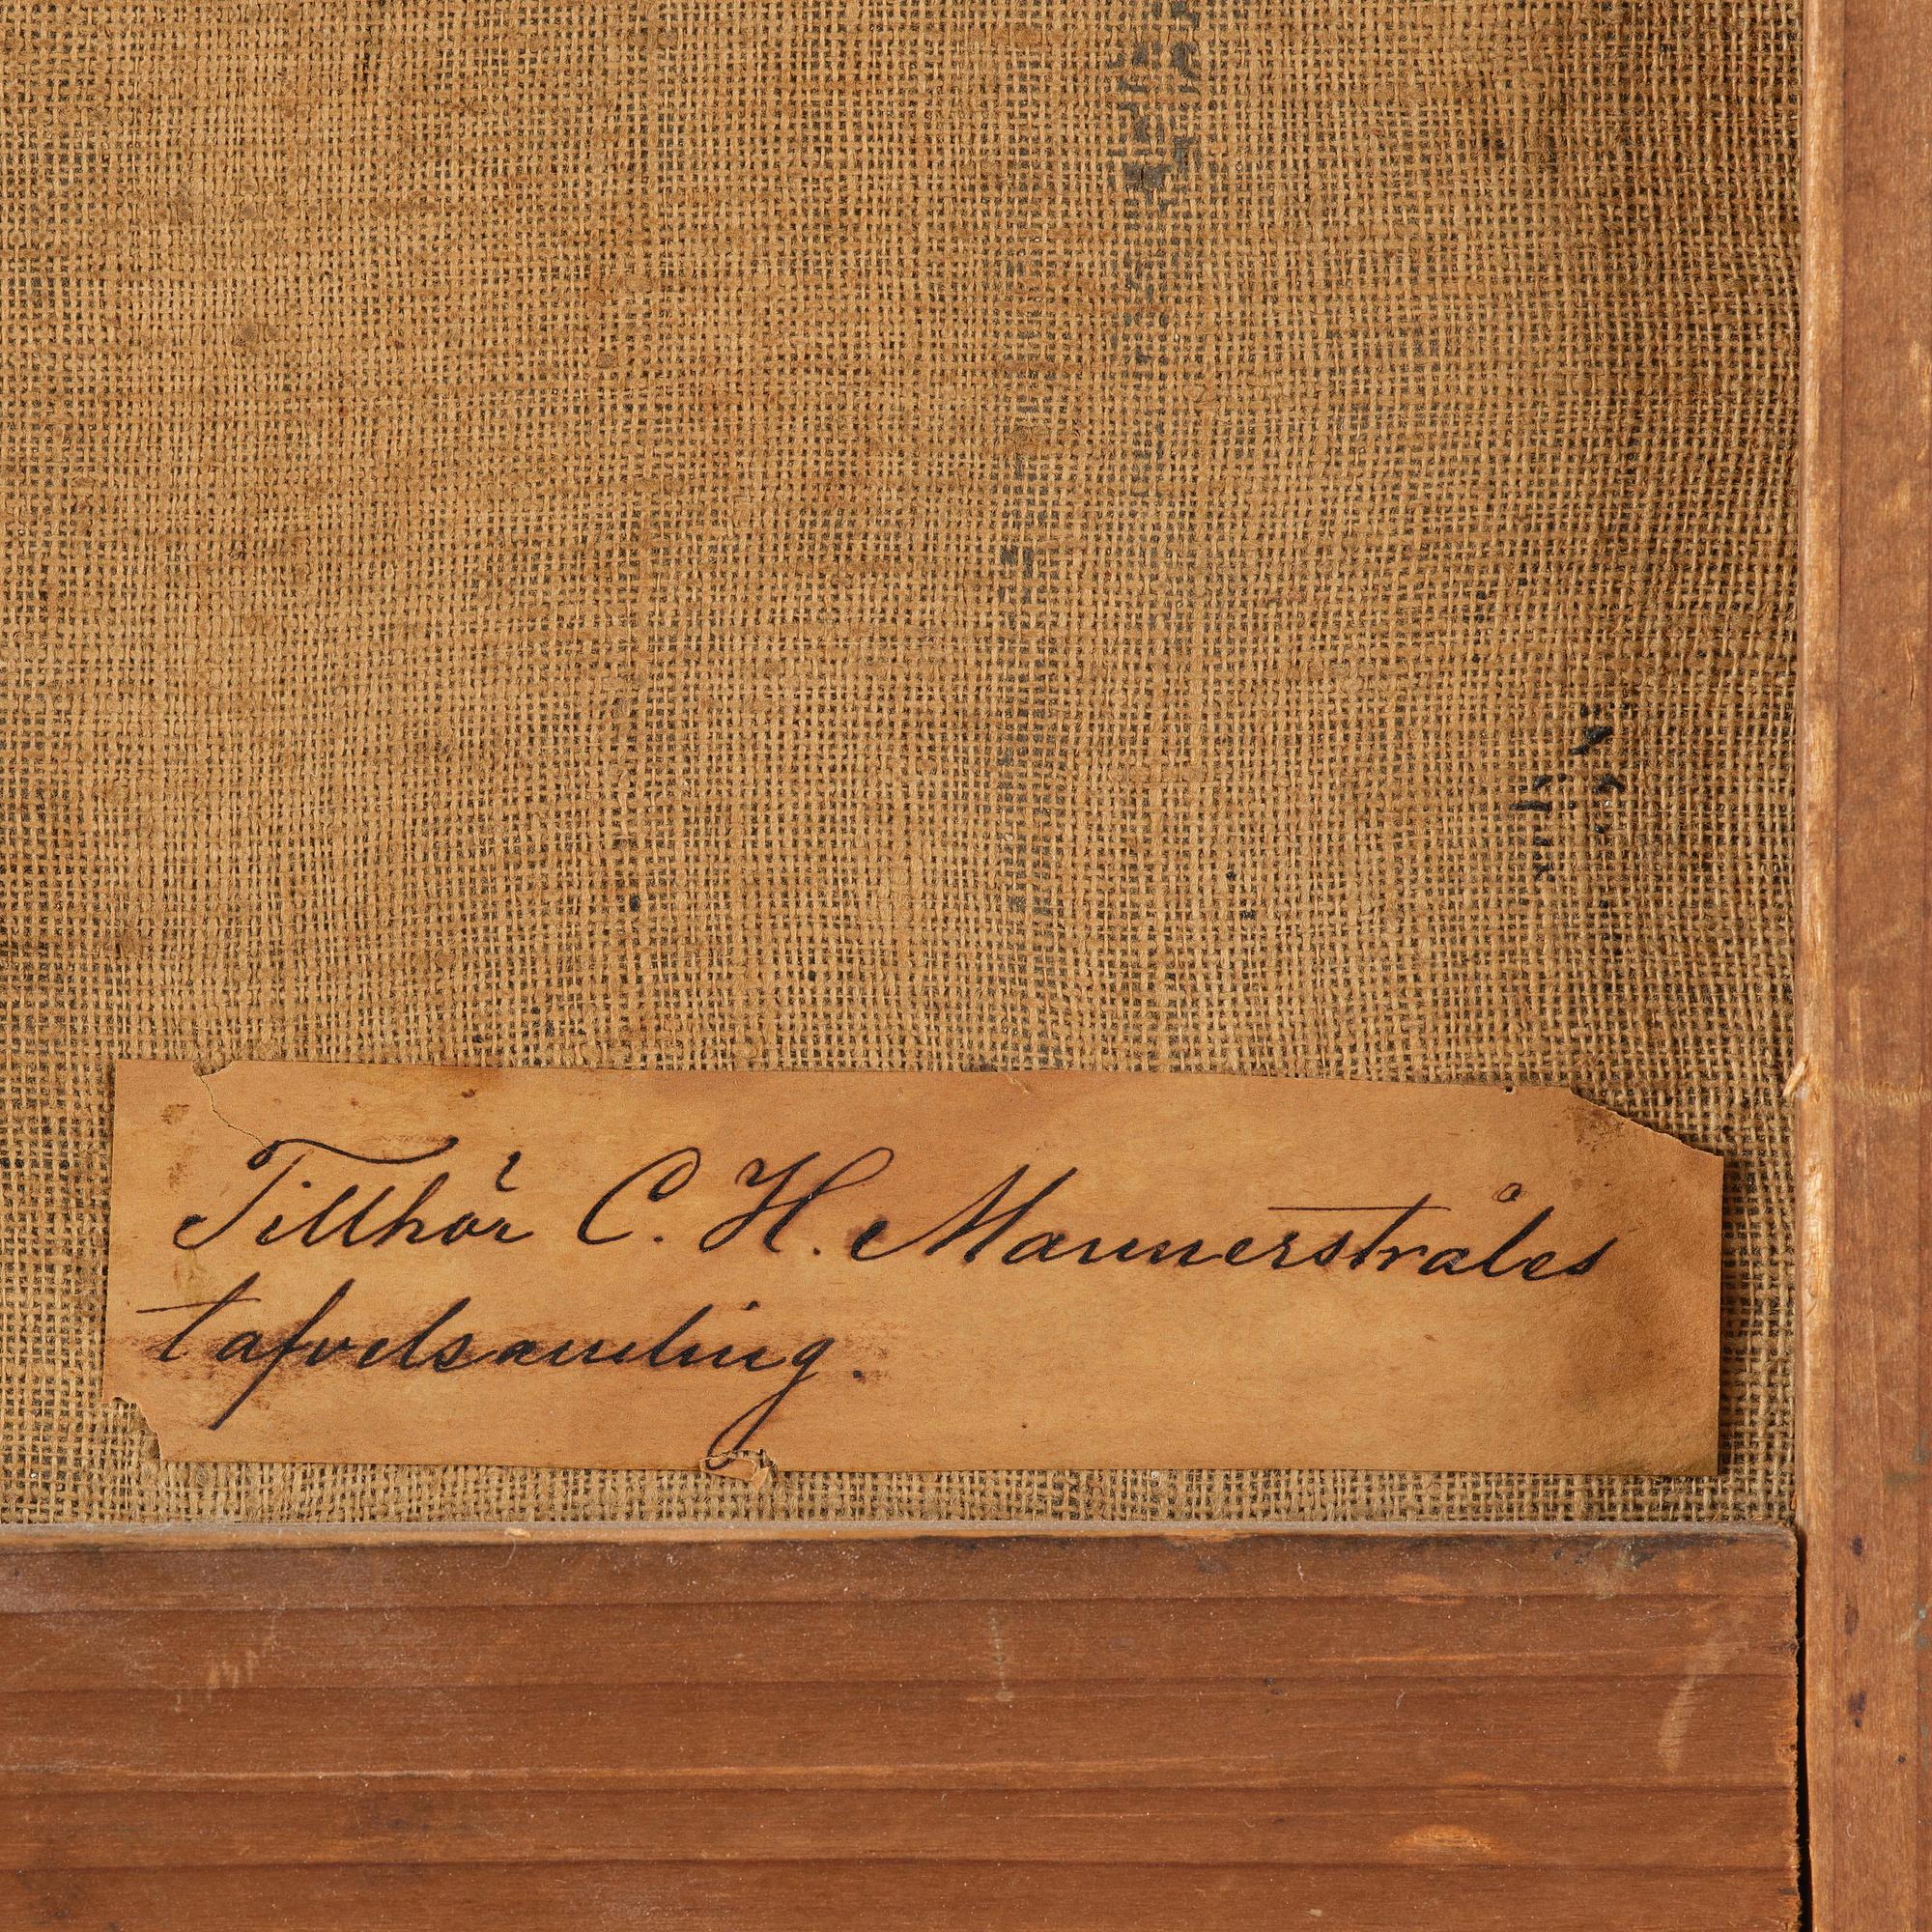 Tillhör C. H. Mannerstråles
tafvelsamling.